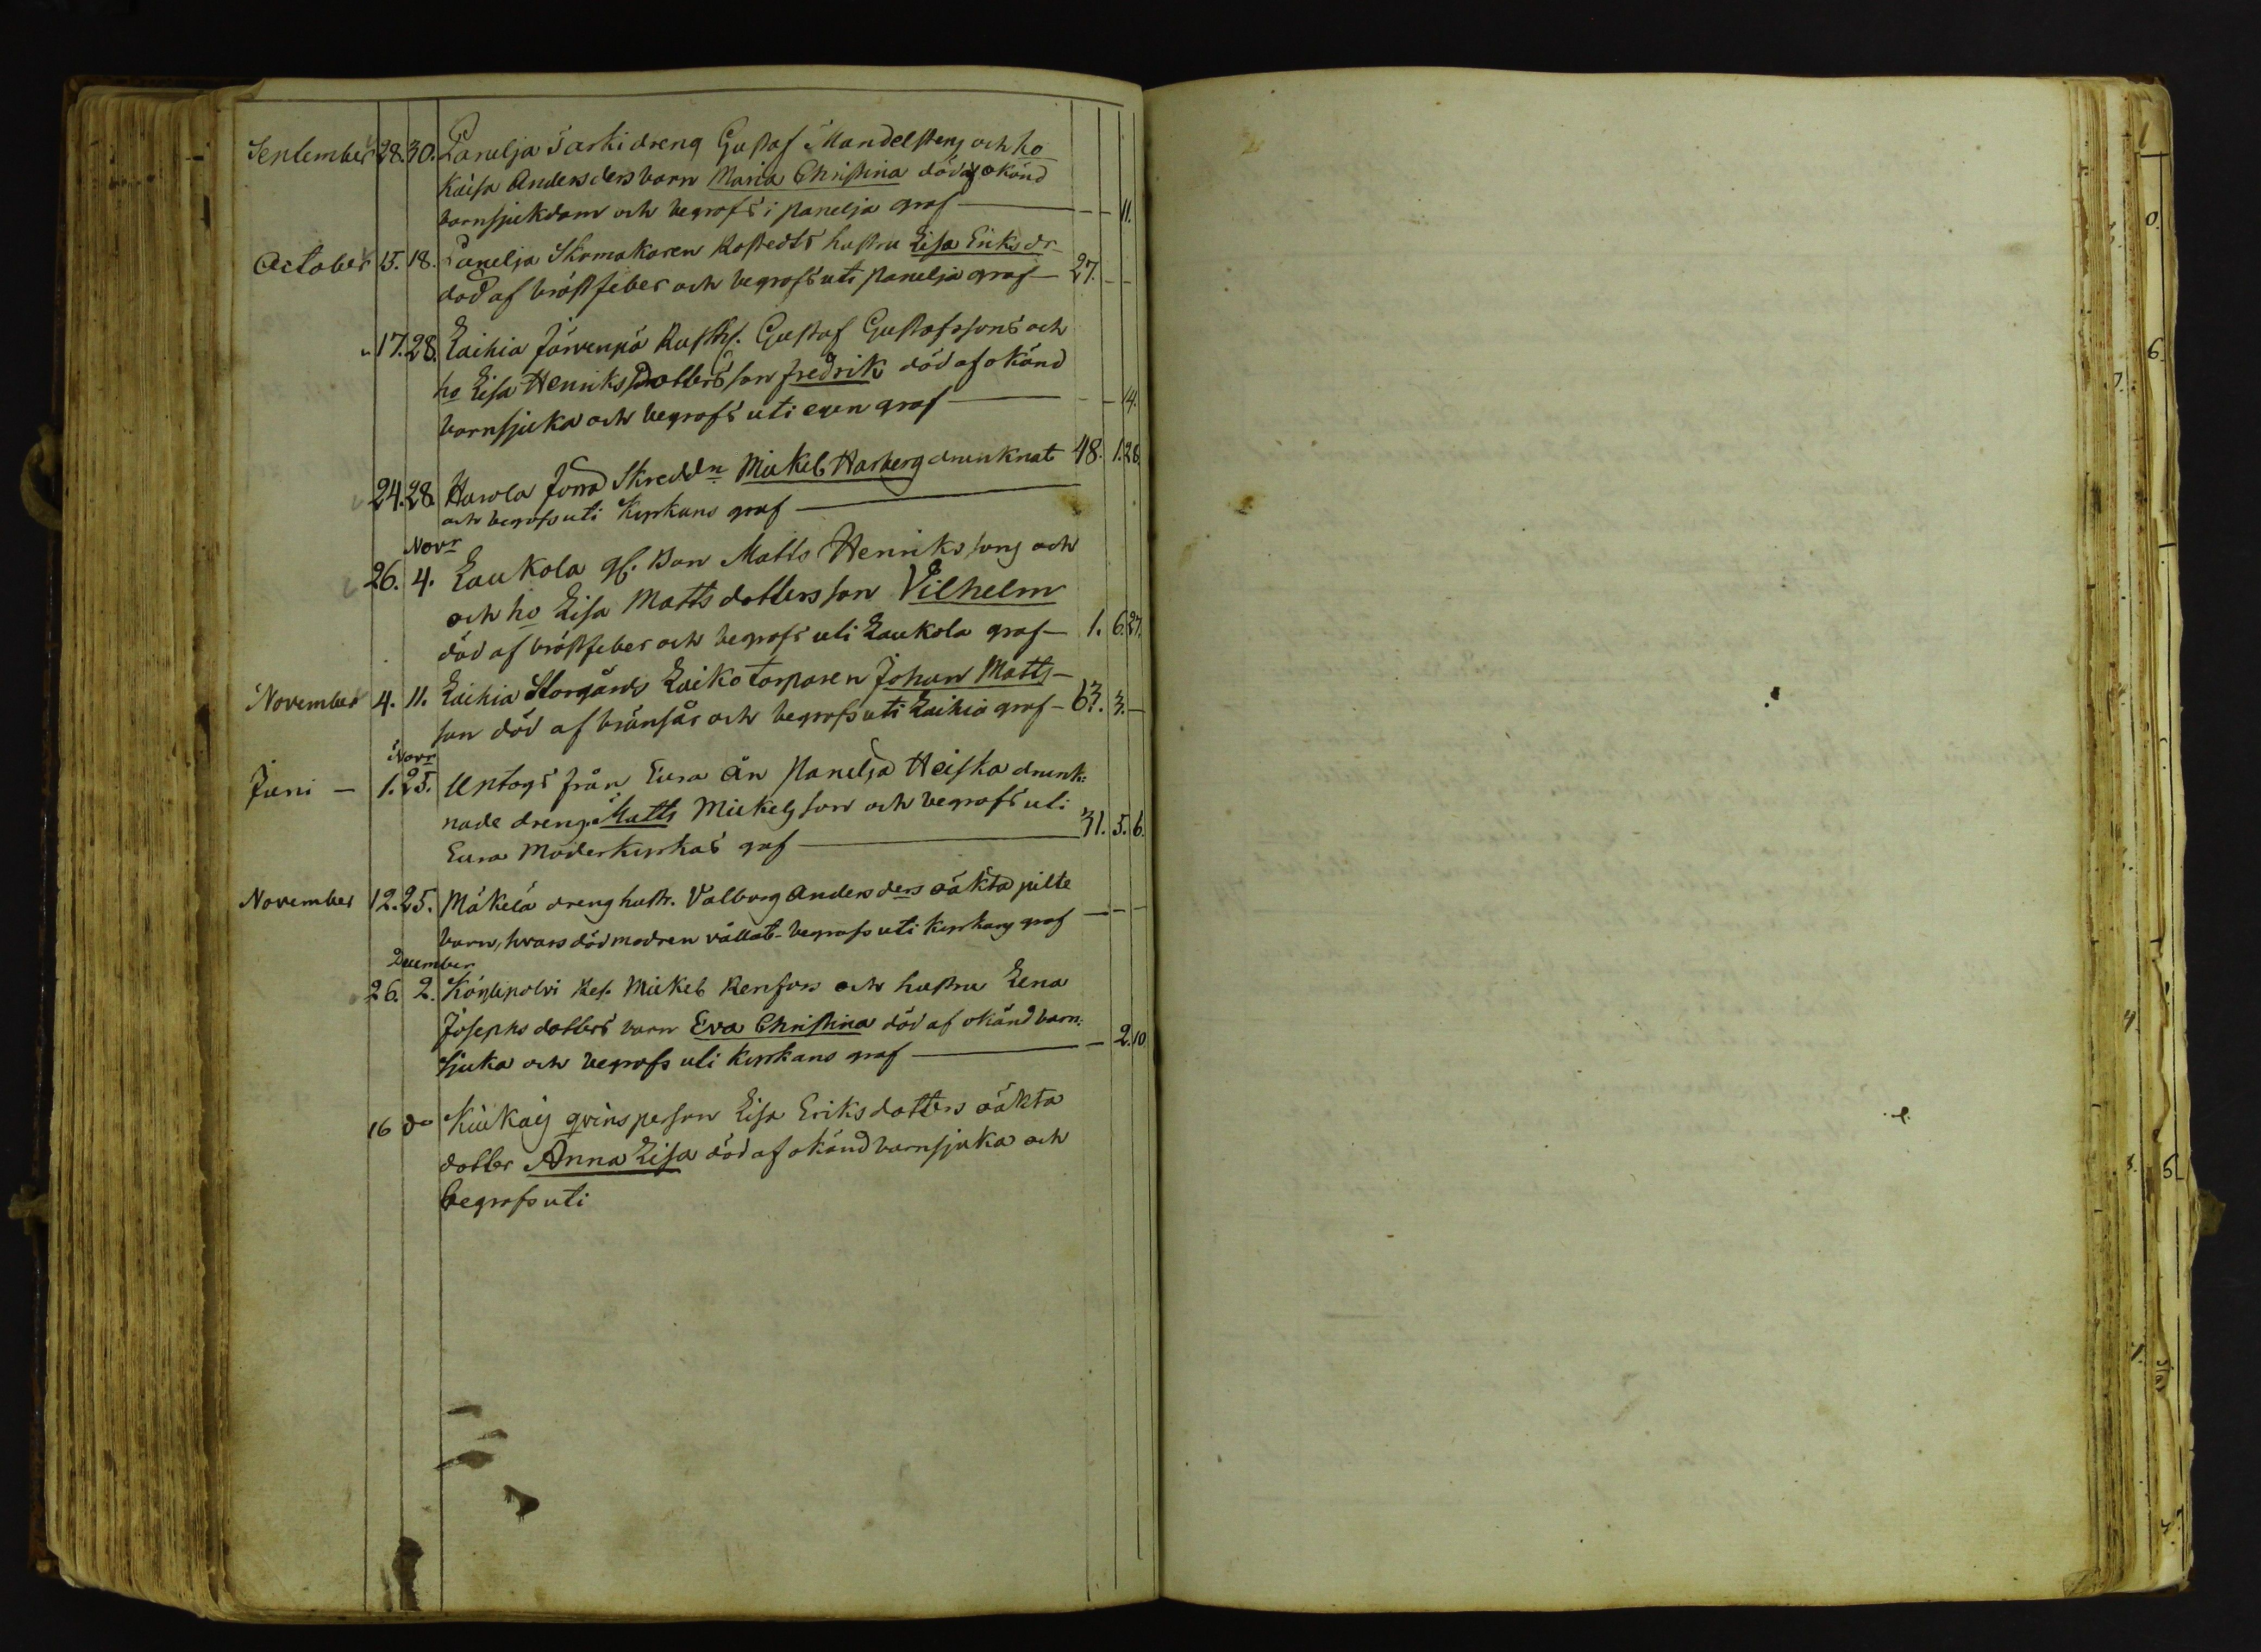 September 28. 30. Panelja Särki dreng Gustaf Mandelstens och ho
Kaisa Andersders barn Maria Christina död af okänd
barnsjukdom och begrofs i panelja graf — — — 11.
October 15. 18. Panelja Skomakaren Rostedts hustru Lisa Eriksdr
död af bröstfeber och begrofs uti panelja graf — 27. — —
17. 28. Laihia Järvenpä Rusth. Gustaf Gustafssons och
ho Lisa Henriksdotters son Fredrik död af okänd
barnsjuka och begrofs uti egen graf — — — 14.
24. 28. Harola Jorra Skreddn Mickel Harberg drunknat 48. 1. 26.
och begrofs uti Kyrkans graf —
Novr
26. 4. Laukola gf. Bon Matts Henrikssons och
och ho Lisa Mattsdotters son Vilhelm
död af bröstfeber och begrofs uti Laukola graf — 1. 6. 27.
November 4. 11. Laihia Storgårds Laiko torparen Johan Matts-
son död af bränsår och begrofs uti Laihia graf — 63. 3. —
Novr
Juni — 1. 25. Uptogs från Eura ån Panelja Heiska drunk:
nade dreng. Matts Mickelsson och begrofs uti
Eura Moderkyrkas graf — 31. 5. 6.
November 12. 25. Mäkelä dreng hustr. Valborg Andersders oäkta pilte
barn, hvars död modren vållat - begrofs uti kyrkans graf — — —
December
26. 2. Köylipolvi Ref. Mickel Renfors och hustru Lena
Josephsdotters barn Eva Christina död af okänd barn:
sjuka och begrofs uti kyrkans graf — — 2. 10
16 do Kiukais qvinsperson Lisa Eriksdotters oäkta
dotter Anna Lisa död af okänd barnsjuka och
begrofs uti